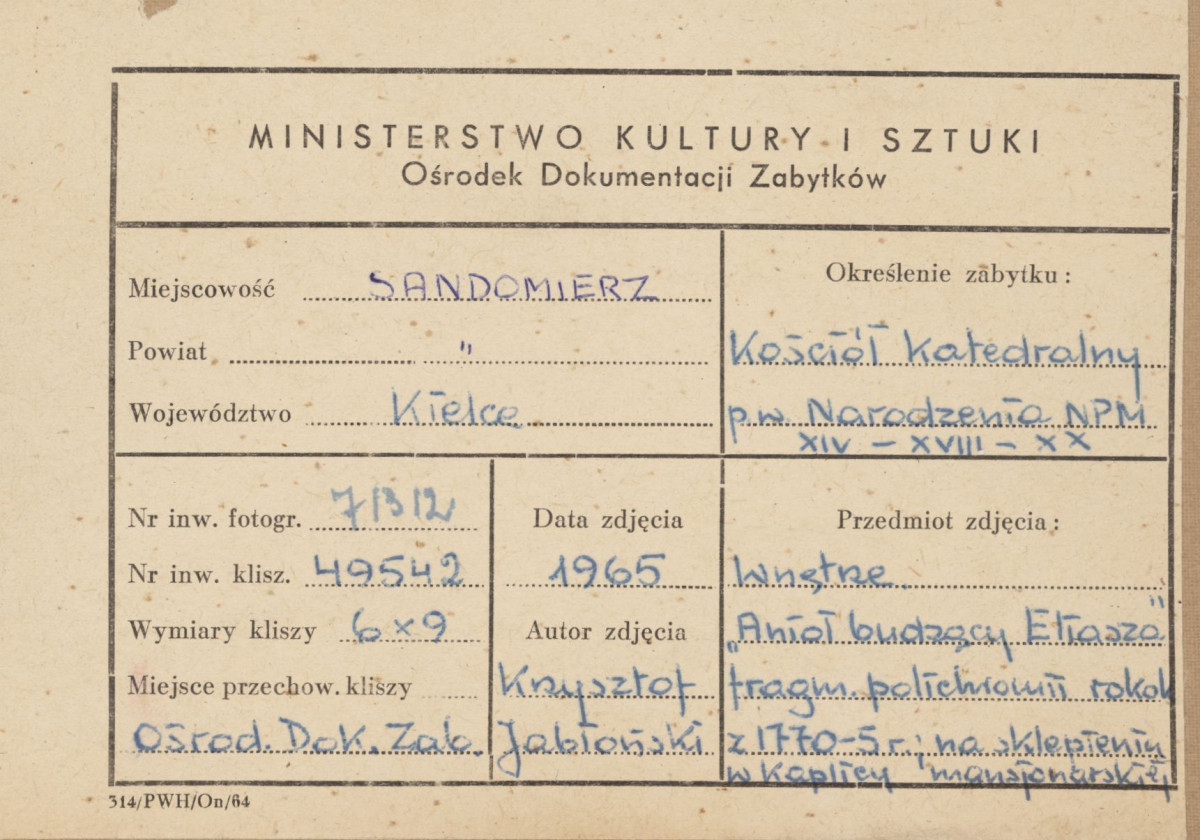 MINISTERSTWO KULTURY I SZTUKI
Ośrodek Dokumentacji Zabytków
Miejscowość SANDOMIERZ
Powiat "
Województwo Kielce
Określenie zabytku:
Kościół Katedralny
p.w. Narodzenia NPM
XIV – XVIII – XX
Nr inw. fotogr. 71312
Nr inw. klisz. 49542
Wymiary kliszy 6×9
Miejsce przechow. kliszy
Ośrod. Dok. Zab.
Data zdjęcia
1965
Autor zdjęcia
Krzysztof
Jabłoński
Przedmiot zdjęcia:
Wnętrze.
„Anioł budzący Eliasza”
fragm. polichromii rokok
z 1770-5 r.; na sklepieniu
w Kaplicy mansjonarskiej
314/PWH/On/64